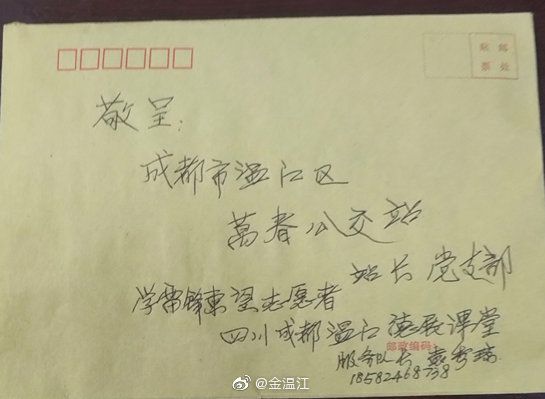 贴 邮
票 处
敬呈:
成都市温江区
万春公交站
站长 党支部
学雷锋東望志愿者
四川成都温江德展课堂
邮政编码:
服务队长
18582468738
@金温江